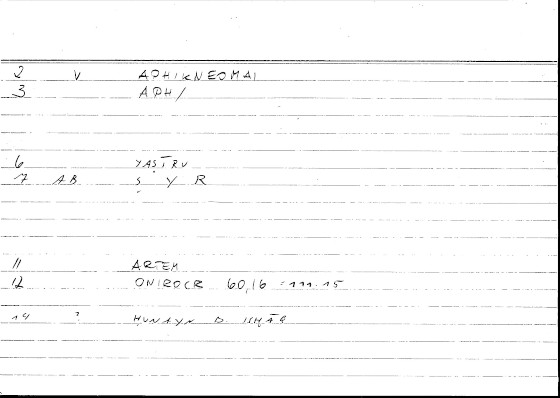 2 V APHIKNEOMAI
3 APH/
6 YAṢĪRU
7 AB Ṣ Y R
11 ARTEM
12 ONIROCR 60,16 = 111.15
14 ? HUNAYN B. ISHĀQ